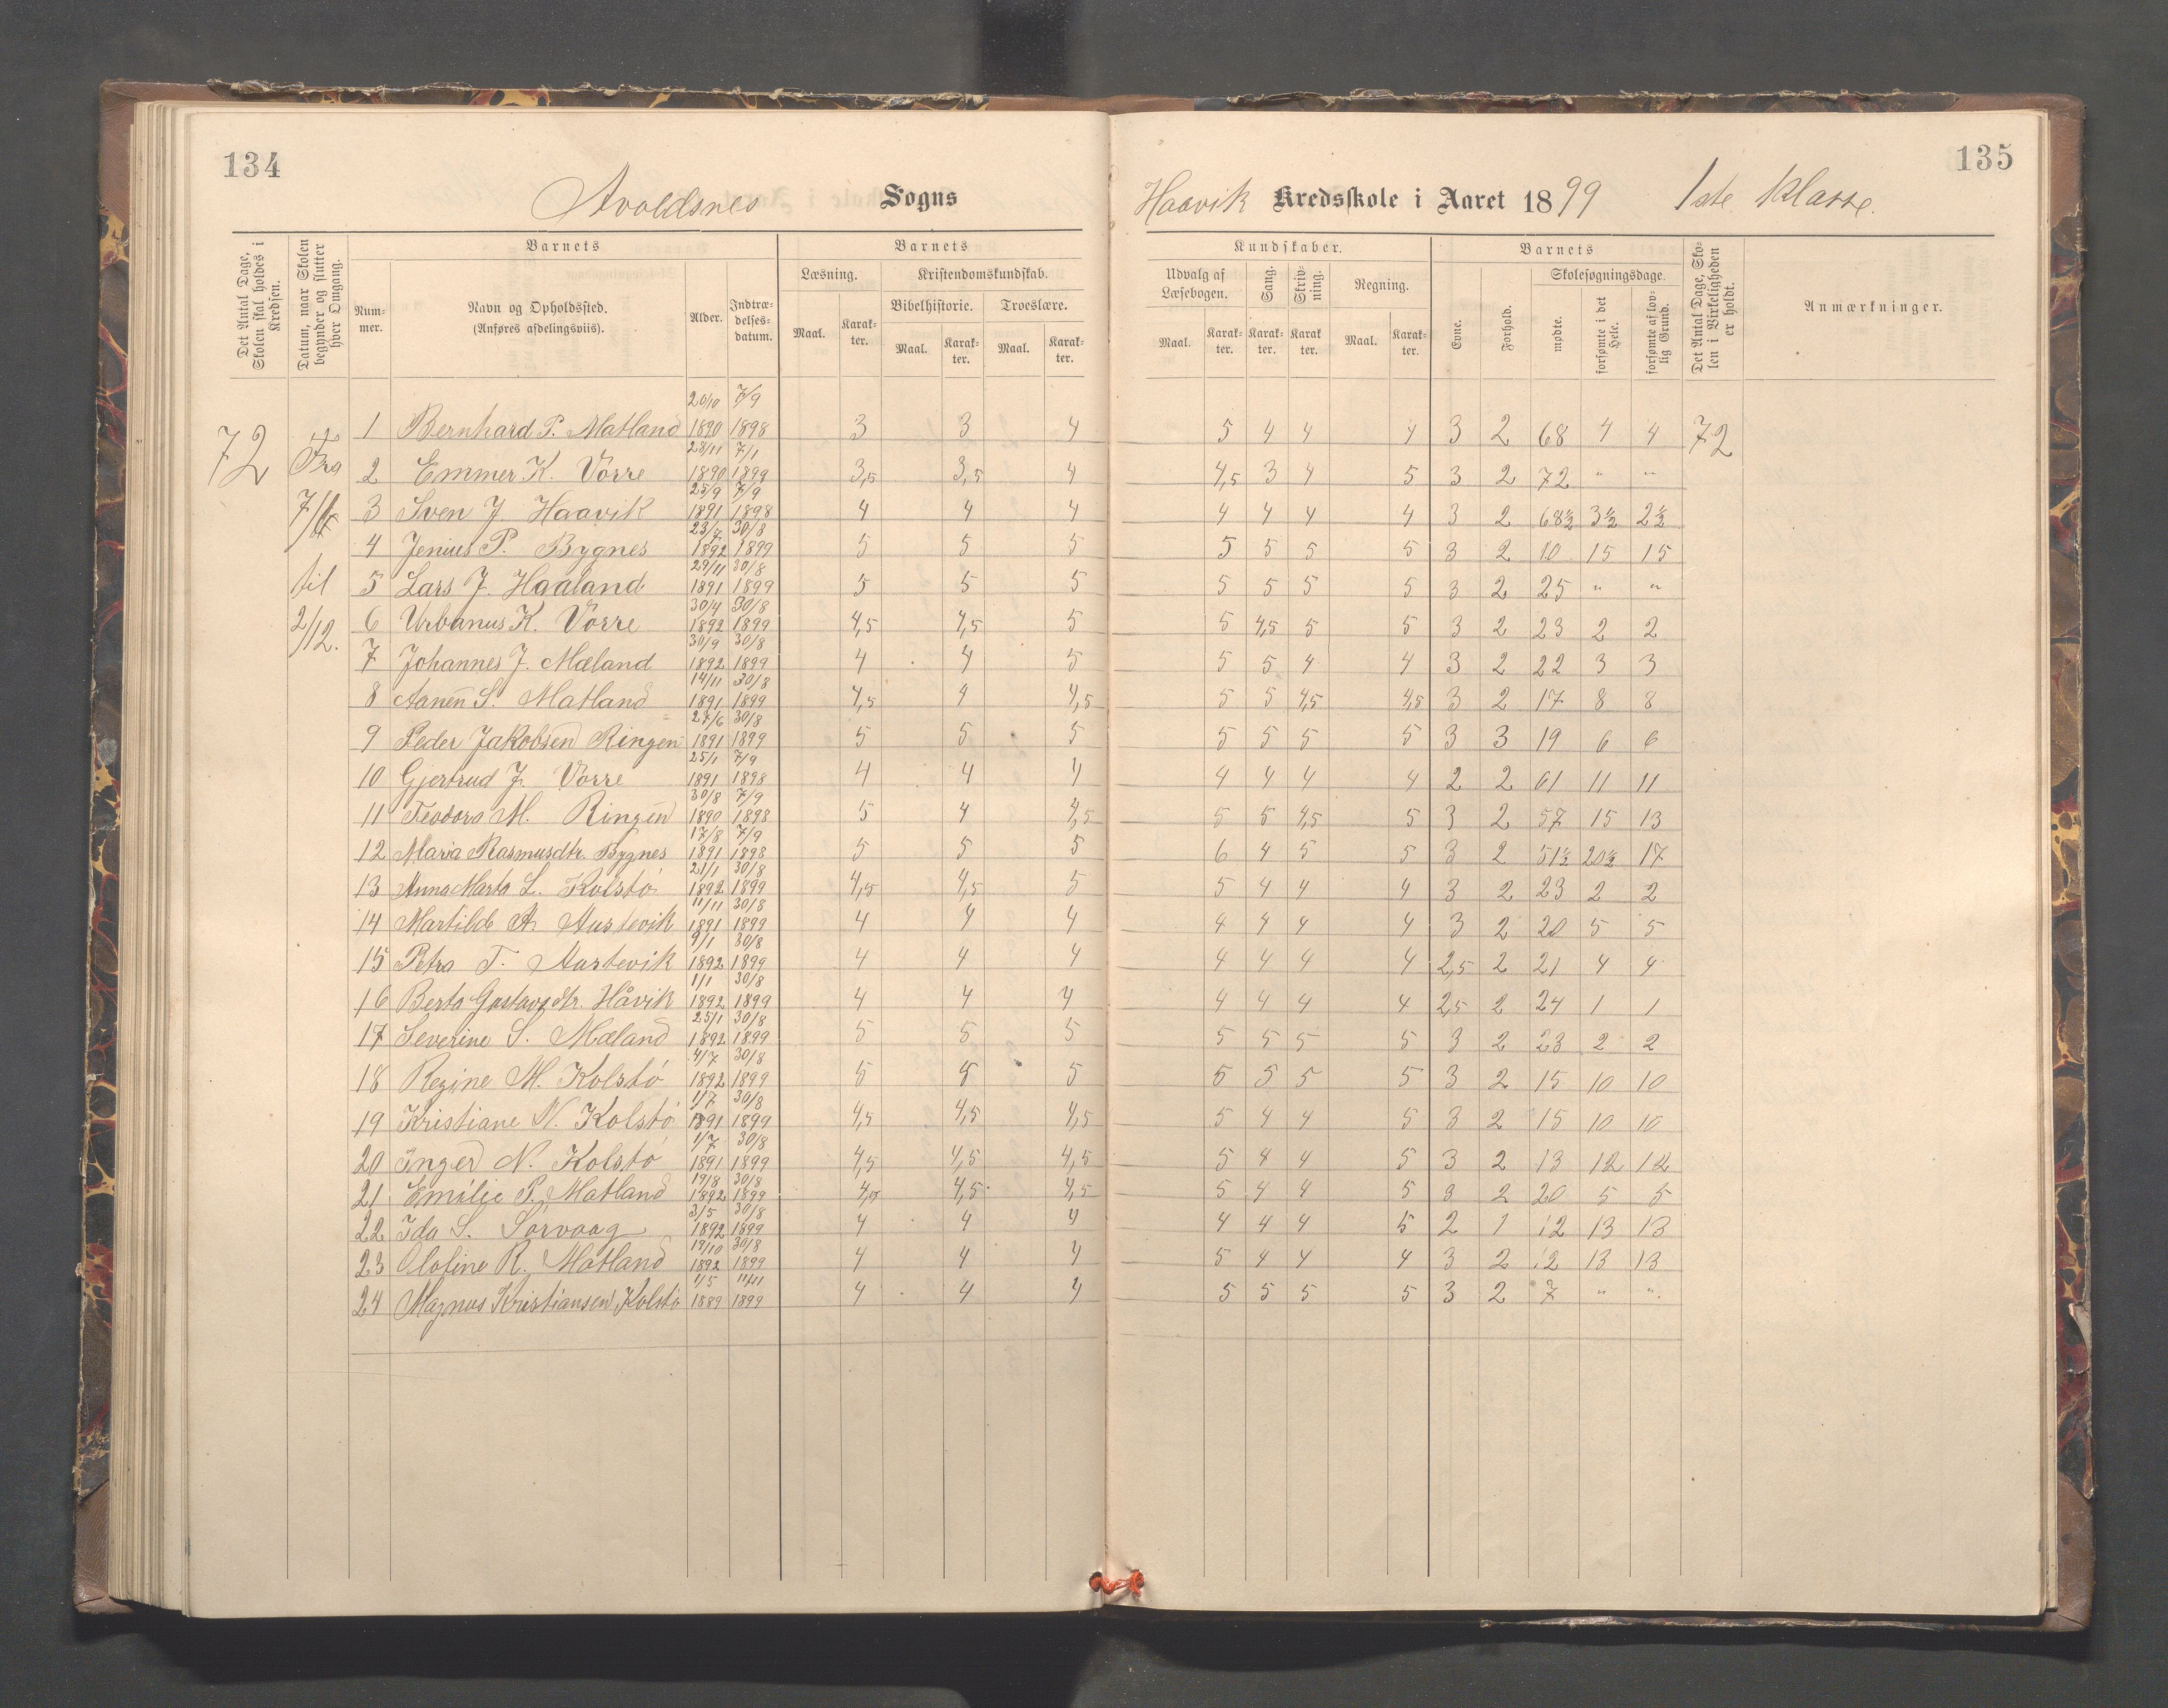 134
Avoldsnes Sogns
Det Antal Dage, Skolen skal holdes i Kredsen.
Datum, naar Skolen begynder og slutter hver Omgang.
Barnets
Barnets
Nummer.
Navn og Opholdssted.
(Anføres afdelingsviis).
Alder.
Indtrædelsesdatum.
Læsning.
Kristendomskundskab.
Bibelhistorie.
Troeslære.
Maal. Karakter. Maal. Karakter. Maal. Karakter.
72
Fra
til
2/12.
1 Bernhard P. Matland 20/10 1890 7/9 1898 3 3 4
2 Emmer K. Vorre 28/11 1890 7/1 1899 3,5 3,5 4
3 Sven J Haavik 25/9 1891 7/9 1898 4 4 4
4 Jenius P. Bygnes 23/7 1892 30/8 1899 5 5 5
5 Lars J. Haaland 29/11 1891 30/8 1899 5 5 5
6 Urbanus K. Vorre 30/4 1892 30/8 1899 4,5 4,5 5
7 Johannes J. Mæland 30/9 1892 30/8 1899 4 4 5
8 Aanen S. Matland 14/11 1891 30/8 1899 4,5 4 4,5
9 Peder Jakobsen Ringen 27/6 1891 30/8 1899 5 5 5
10 Gjertrud J. Vorre 25/1 1891 7/9 1898 4 4 4
11 Teodora M. Ringen 30/8 1890 7/9 1898 5 4 4,5
12 Maria Rasmusdtr. Bygnes 17/8 1891 7/9 1898 5 5 5
13 Anna Marta L. Kolstö 21/1 1892 30/8 1899 4,5 4,5 5
14 Martilde A. Austevik 11/11 1891 30/8 1899 4 4 4
15 Petra T. Austevik 9/1 1892 30/8 1899 4 4 4
16 Berta Gustavsdtr. Håvik 1/1 1892 30/8 1899 4 4 4
17 Severine S. Mæland 25/1 1892 30/8 1899 5 5 5
18 Regine M. Kolstö 4/7 1892 30/8 1899 5 5 5
19 Kristiane N. Kolstö 1/7 1891 30/8 1899 4,5 4,5 4,5
20 Inger N. Kolstö 1/7 1891 30/8 1899 4,5 4,5 4,5
21 Emilie P. Matland 19/8 1892 30/8 1899 4,5 4,5 4,5
22 Ida S. Sørvaag 3/5 1892 30/8 1899 4 4 4
23 Olofine R. Matland 19/10 1892 30/8 1899 4 4 4
24 Magnus Kristiansen Kolstö 1/5 1889 11/11 1899 4 4 4
135
Haavik Kredsskole i Aaret 1899 1ste Klasse.
Kundskaber.
Barnets
Udvalg af Læsebogen.
Sang.
Skrivning.
Regning.
Evne.
Forhold.
Skolesøgningsdage.
mødte.
forsømte i det Hele.
forsømte af lovlig Grund.
Det Antal Dage, Skolen i Virkeligheden er holdt.
Anmærkninger.
Maal. Karakter. Karakter. Karakter. Maal. Karakter.
5 4 4 4 3 2 68 4 4 72
4,5 3 4 5 3 2 72 " "
4 4 4 4 3 2 68½ 3½ 2½
5 5 5 5 3 2 10 15 15
5 5 5 5 3 2 25 " "
5 4,5 5 5 3 2 23 2 2
5 5 4 4 3 2 22 3 3
5 5 4,5 4,5 3 2 17 8 8
5 5 5 5 3 3 19 6 6
4 4 4 4 2 2 61 11 11
5 5 4,5 5 3 2 57 15 13
6 4 5 5 3 2 51½ 20½ 17
5 4 4 4 3 2 23 2 2
4 4 4 4 3 2 20 5 5
4 4 4 4 2,5 2 21 4 4
4 4 4 4 2,5 2 24 1 1
5 5 5 5 3 2 23 2 2
5 5 5 5 3 2 15 10 10
5 4 4 5 3 2 15 10 10
5 4 4 5 3 2 13 12 12
5 4 4 5 3 2 20 5 5
4 4 4 5 2 1 12 13 13
5 4 4 4 3 2 12 13 13
5 5 5 5 3 2 7 " "